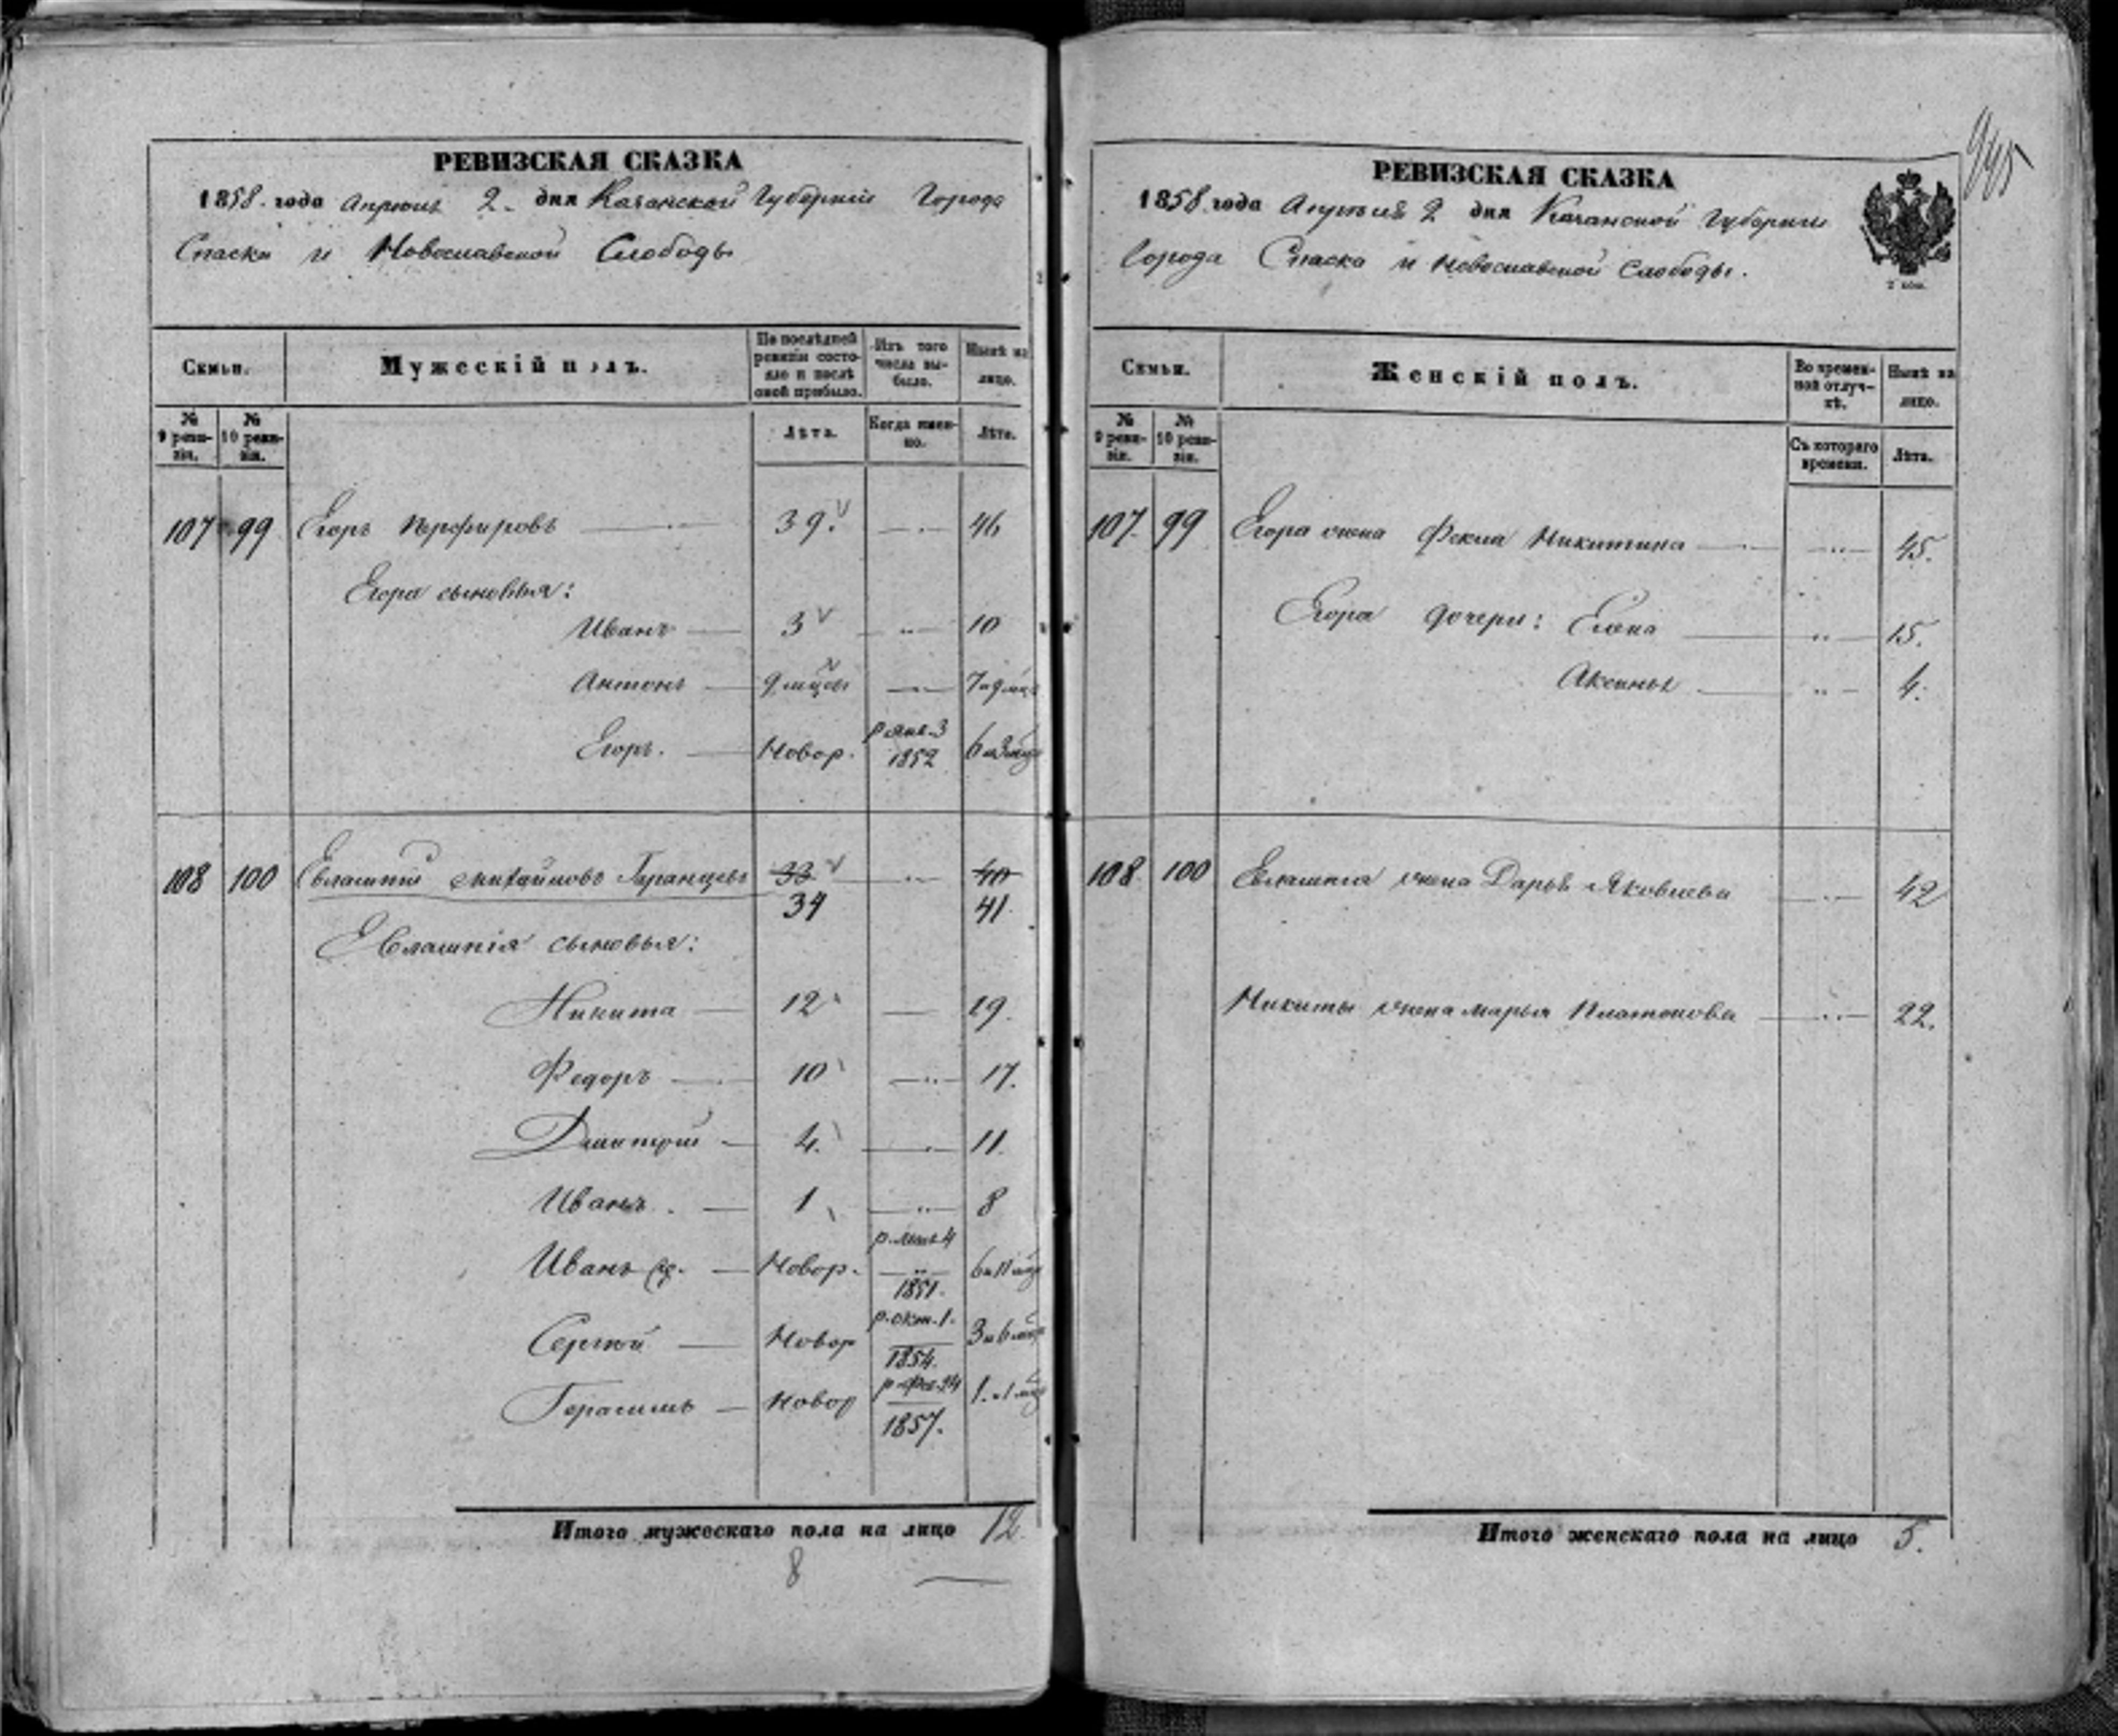 РЕВИЗСКАЯ СКАЗКА
1858. года Апреля 2. дня Казанской Губерніи Города
Спаска и Слободы
Семьи. Мужескій полъ. По послѣдней ревизіи состояло и послѣ оной прибыло. Изъ того числа выбыло. Нынѣ на лицо.
№ 9 ревизіи. № 10 ревизіи. Лѣта. Когда именно. Лѣта.
107 99 Егоръ Порфировъ 39. 46
Егора сыновья:
Иванъ 3 10
Антонъ 9 мцы 7 и 9 мцъ
Егоръ. Новор. р. янв. 3 1852 6 и 3 мцъ
108 100 Евлампій Михайловъ 33 40
34 41.
Евлампія сыновья:
Никита 12 19.
Федоръ 10 17.
Дмитрій 4. 11.
Иванъ. 1 8
Иванъ Новор. 4 1851. 6 и 11 мцъ
Сергѣй Новор р. окт. 1. 1854. 3 и 6 мцъ
Герасимъ Новор р. фев. 24 1857. 1. и 1 мцъ
Итого мужескаго пола на лицо 12.
8
945
РЕВИЗСКАЯ СКАЗКА
1858. года Апреля 2 дня Казанской Губерніи
Города Спаска и Слободы.
2 коп.
Семьи. Женскій полъ. Во временной отлучкѣ. Нынѣ на лицо.
№ 9 ревизіи. № 10 ревизіи. Съ котораго времени. Лѣта.
107. 99 Егора жена Фекла Никитина 45.
Егора дочери: Елена 15.
Аксинья 4.
108. 100 Евлампія жена Дарья Яковлева 42
Никиты жена Марья Платонова 22.
Итого женскаго пола на лицо 5.